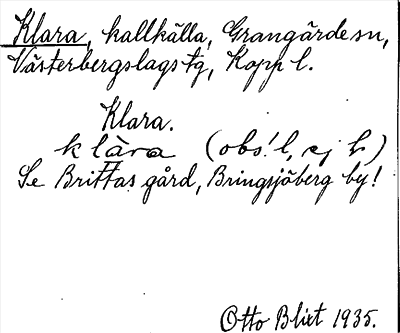 Klara, kallkälla, Grangärde sn,
Västerbergslags tg, Kopp l.
Klara.
klàra (obs! l, ej ł)
Se Brittas gård, Bringsjöberg by!
Otto Blixt 1935.